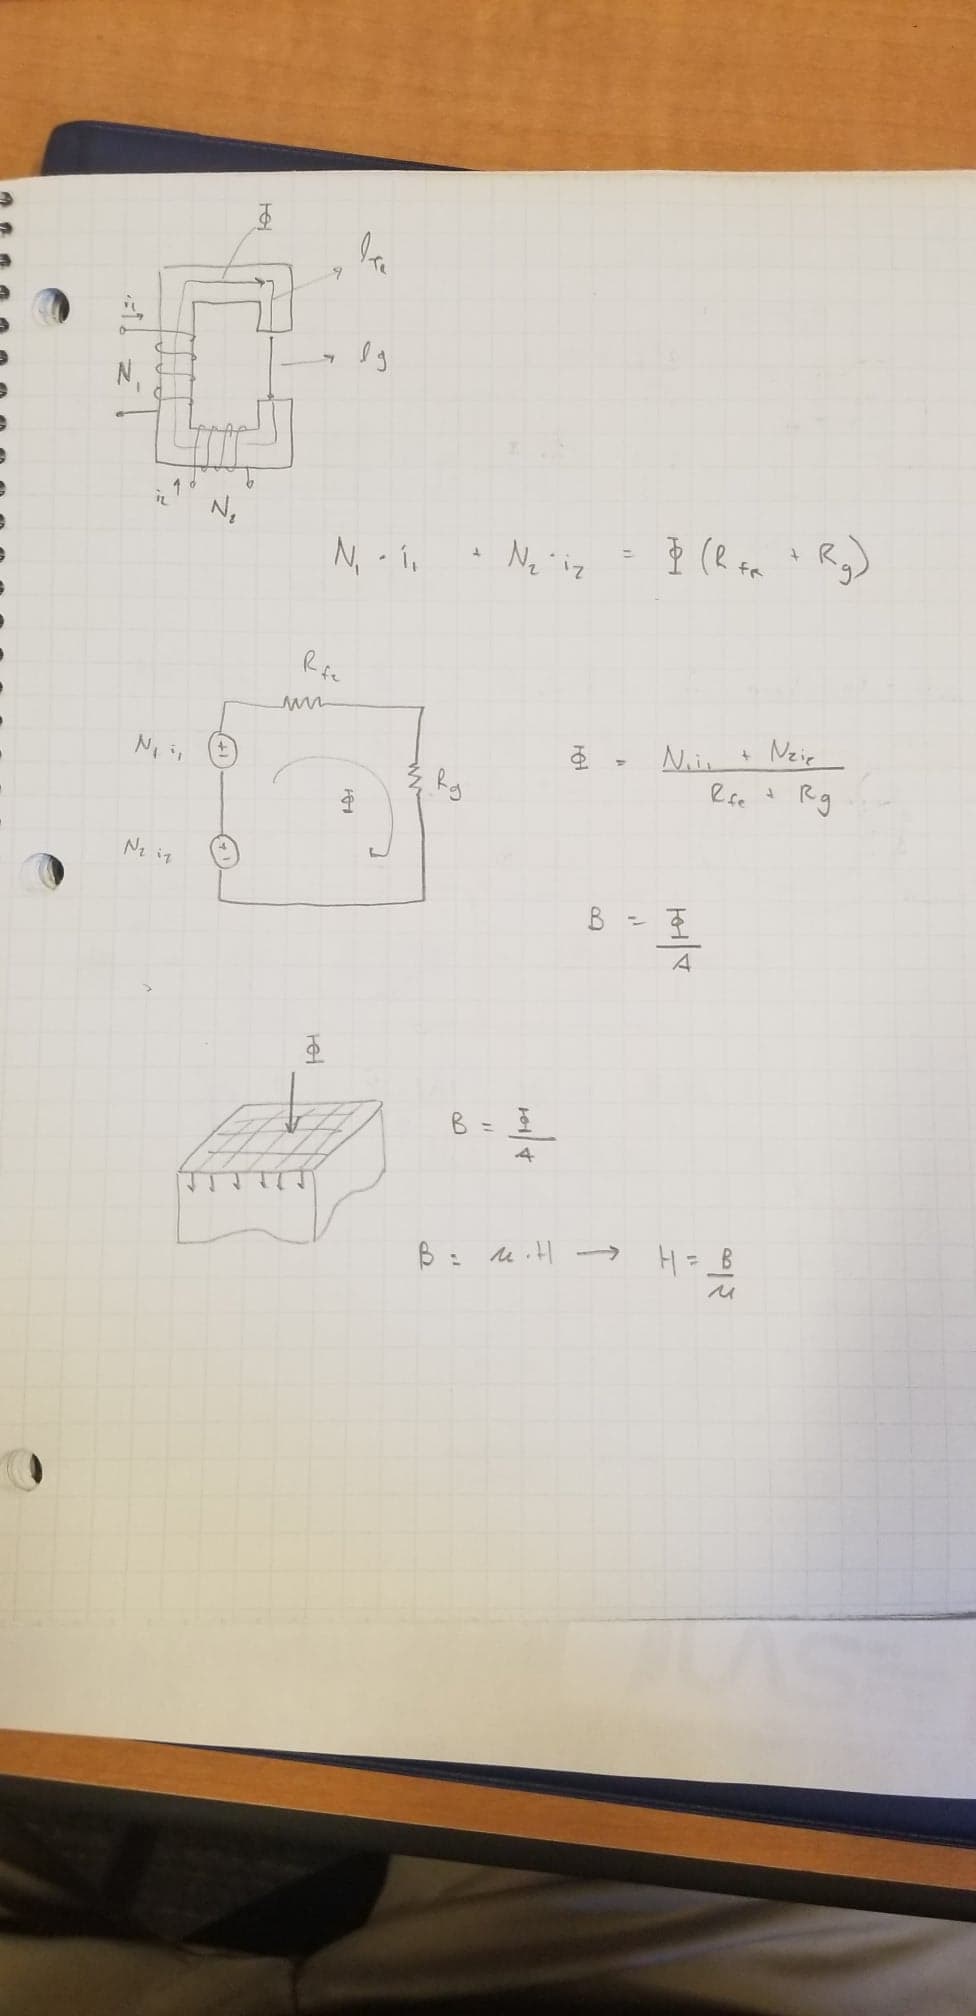 Φ
l_fe
i₁
N₁
l_g
i₂
N₂
N₁ · i₁ + N₂ · i₂ = Φ (R_fe + R_g)
R_fe
N₁ i₁
Φ
R_g
Φ = N₁i₁ + N₂i₂ / R_fe + R_g
N₂ i₂
B = Φ / A
Φ
B = Φ / A
B = μ · H → H = B / μ